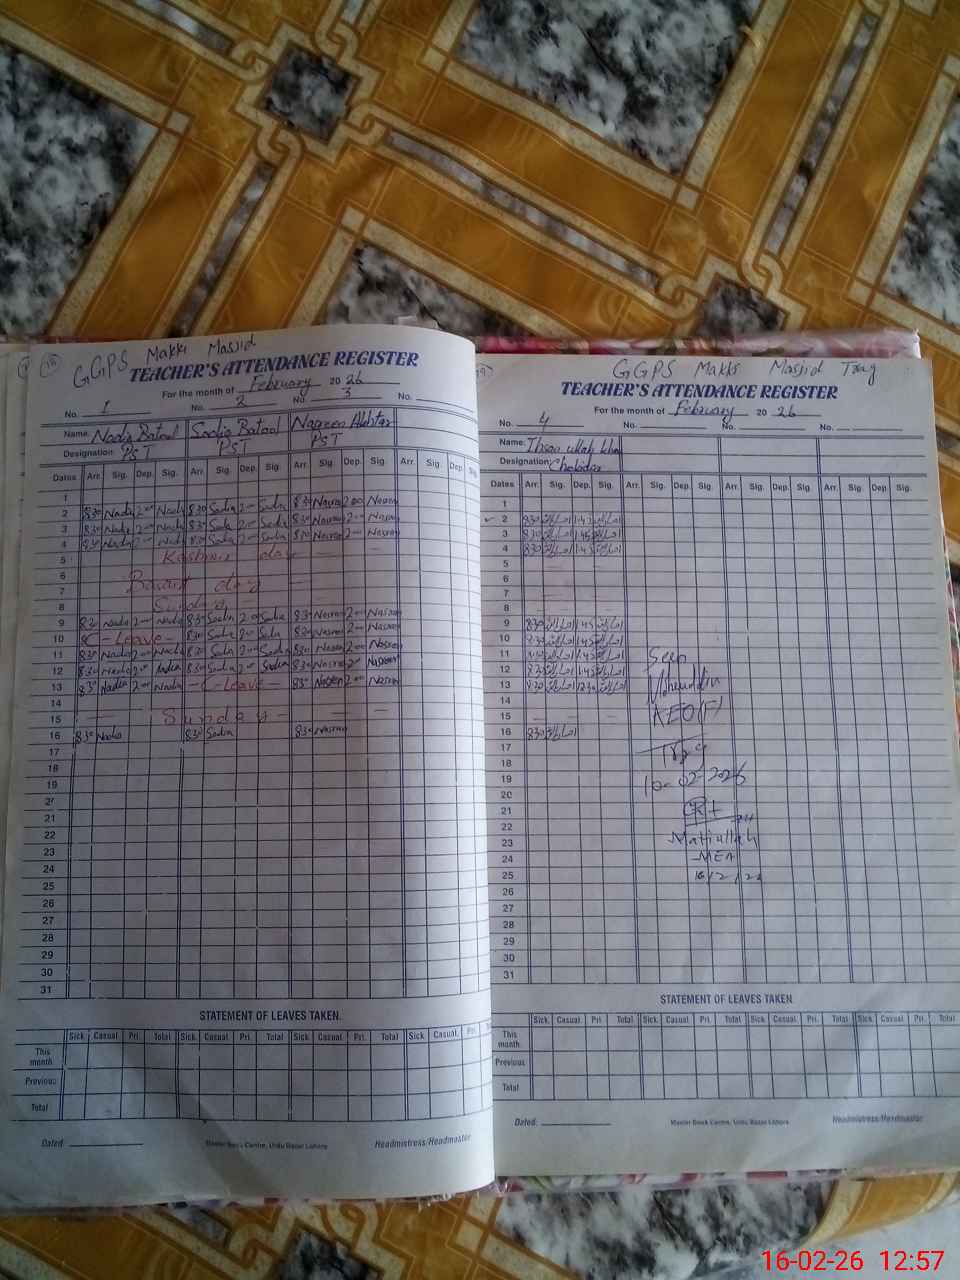 GGPS Makki Masjid
TEACHER'S ATTENDANCE REGISTER
For the month of February 2026
No. 1 No. 2 No. 3 No.
Name: Nadia Batool Sadia Batool Nasreen Akhtar
Designation: PST PST PST
Dates Arr. Sig. Dep. Sig. Arr. Sig. Dep. Sig. Arr. Sig. Dep. Sig. Arr. Sig. Dep. Sig.
1
2 8:30 Nadia 2:00 Nadia 8:30 Sadia 2:00 Sadia 8:30 Nasreen 2:00 Nasreen
3 8:30 Nadia 2:00 Nadia 8:30 Sadia 2:00 Sadia 8:30 Nasreen 2:00 Nasreen
4 8:30 Nadia 2:00 Nadia 8:30 Sadia 2:00 Sadia 8:30 Nasreen 2:00 Nasreen
5 Kashmir day
6
7 day
8 Sunday
9 8:30 Nadia 2:00 Nadia 8:30 Sadia 2:00 Sadia 8:30 Nasreen 2:00 Nasreen
10 C-Leave 8:30 Sadia 2:00 Sadia 8:30 Nasreen 2:00 Nasreen
11 8:30 Nadia 2:00 Nadia 8:30 Sadia 2:00 Sadia 8:30 Nasreen 2:00 Nasreen
12 8:30 Nadia 2:00 Nadia 8:30 Sadia 2:00 Sadia 8:30 Nasreen 2:00 Nasreen
13 8:30 Nadia 2:00 Nadia C-Leave 8:30 Nasreen 2:00 Nasreen
14
15 Sunday
16 8:30 Nadia 8:30 Sadia 8:30 Nasreen
17
18
19
20
21
22
23
24
25
26
27
28
29
30
31
STATEMENT OF LEAVES TAKEN.
Sick Casual Pri. Total Sick Casual Pri. Total Sick Casual Pri. Total Sick Casual Pri. Total
This month
Previous
Total
Dated Master Book Centre, Urdu Bazar Lahore Headmistress/Headmaster
GGPS Makki Masjid
TEACHER'S ATTENDANCE REGISTER
For the month of February 2026
No. 4 No. No. No.
Name: Ihsan ullah khan
Designation: Chokidar
Dates Arr. Sig. Dep. Sig. Arr. Sig. Dep. Sig. Arr. Sig. Dep. Sig. Arr. Sig. Dep. Sig.
1
2 8:30 1:45
3 8:30 1:45
4 8:30 1:45
5
6
7
8
9 8:30 1:45
10 8:30 1:45
11 8:30 1:45
12 8:30 1:45
13 8:30 12:30
14
15
16 8:30
17
18
19
20
21
22
23
24
25
26
27
28
29
30
31
Seen
AEO(F)
10-02-2026
Matiullah
MEA
STATEMENT OF LEAVES TAKEN
Sick Casual Pri. Total Sick Casual Pri. Total Sick Casual Pri. Total Sick Casual Pri. Total
This month
Previous
Total
Dated. Master Book Centre, Urdu Bazar Lahore Headmistress/Headmaster
16-02-26 12:57